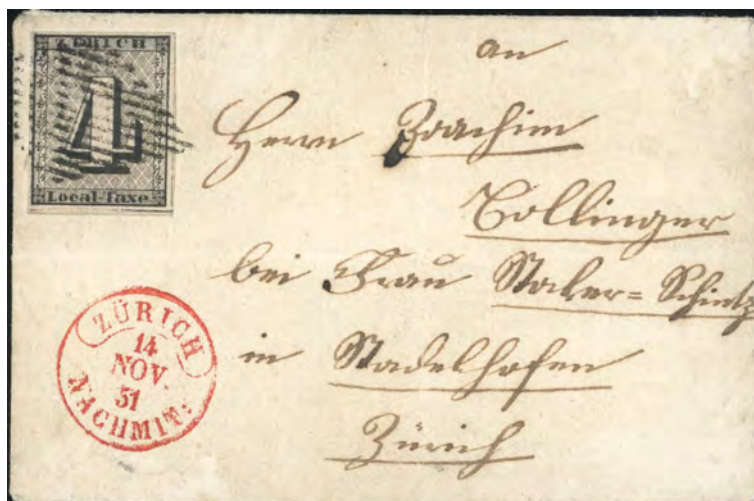 ZÜRICH
4
Local-Taxe
an
Herrn Joachim
Bollinger
bei Frau
in Stadelhofen
Zürich
ZÜRICH
14
NOV.
51
NACHMIT: